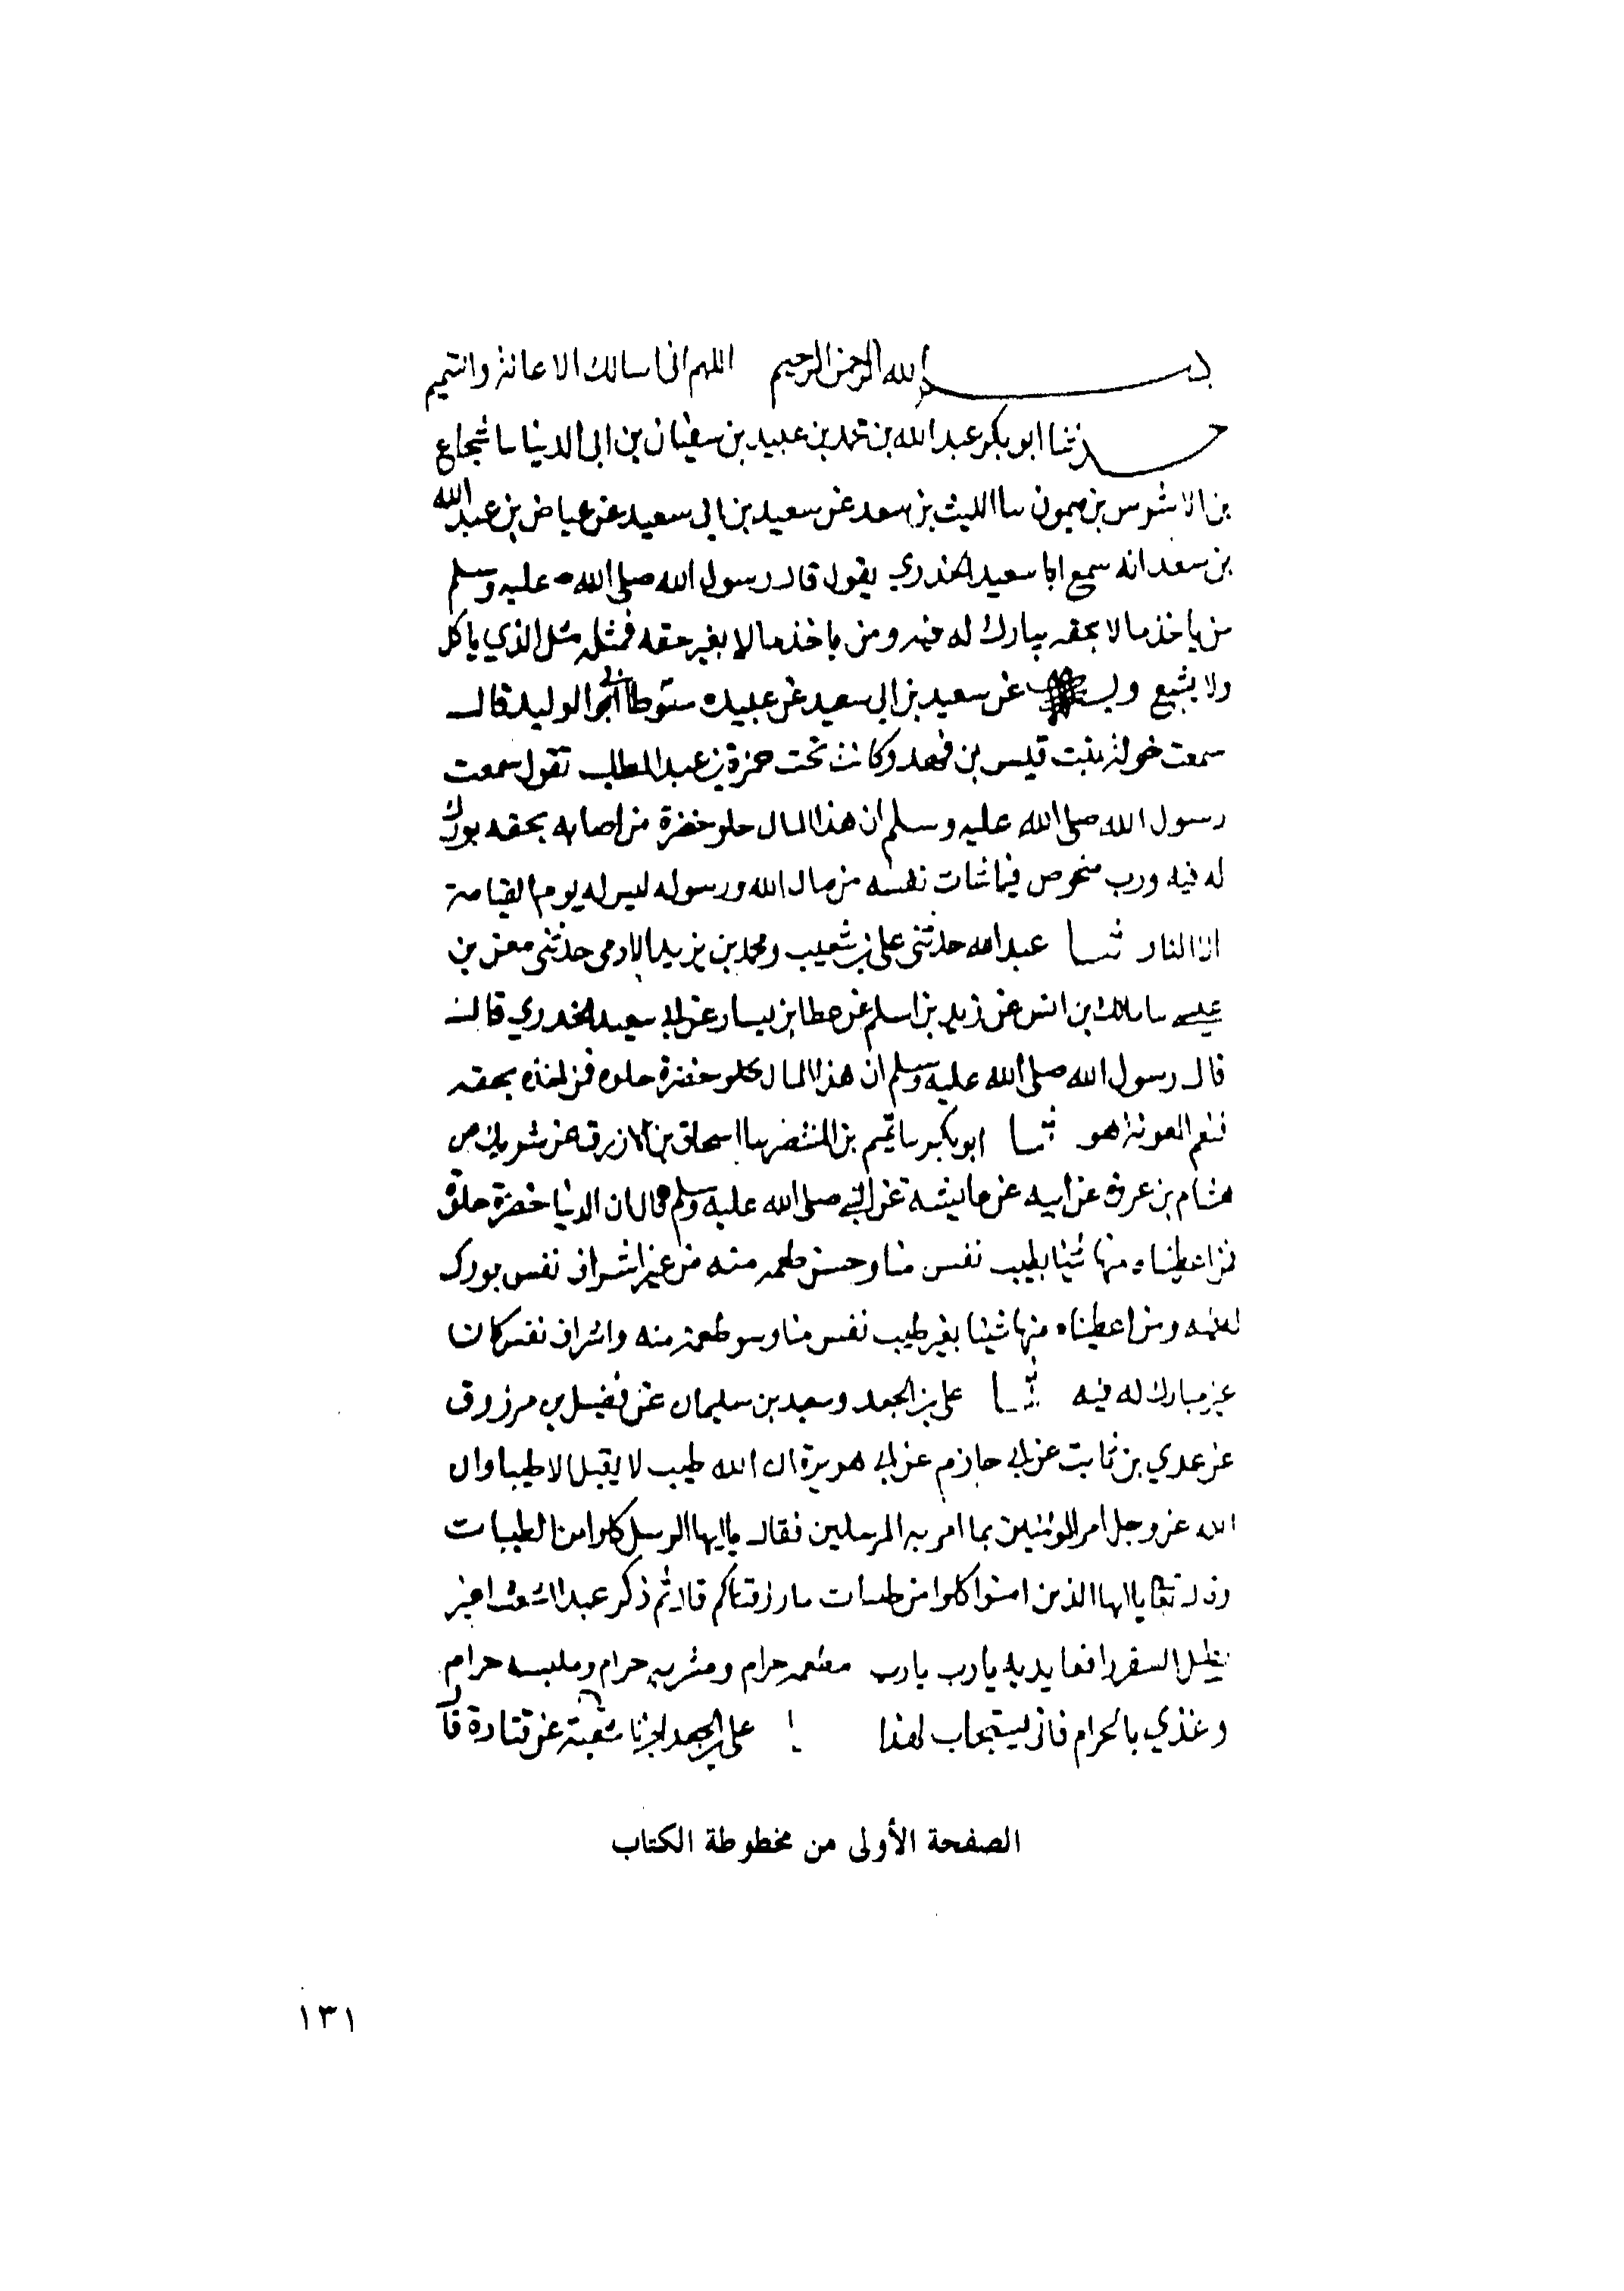 بسم الله الرحمن الرحيم اللهم انى اسالك الاعانة والتتميم
حدثنا ابو بكر عبد الله بن محمد بن عبيد بن سفيان بن ابى الدنيا سا شجاع
بن الاشرس بن ميمون سا الليث بن سعد عن سعيد بن ابى سعيد عن عياض بن عبد الله
بن سعد انه سمع ابا سعيد الخدري يقول قال رسول الله صلى الله عليه وسلم
من ياخذ مالا بحقه يبارك له فيه ومن ياخذ مالا بغير حقه فمثله مثل الذي ياكل
ولا يشبع عن سعيد بن ابى سعيد عن عبيده سنوطا ابى الوليد قال
سمعت خولة بنت قيس بن فهد وكانت تحت حمزة بن عبد المطلب تقول سمعت
رسول الله صلى الله عليه وسلم ان هذا المال حلو خضرة من اصابه بحقه بورك
له فيه ورب متخوض فيما شات نفسه من مال الله ورسوله ليس له يوم القيامة
الا النار ثنا عبد الله حدثنى على بن شعيب ومحمد بن يزيد الادمى حدثنى معن بن
عيسى سا مالك بن انس عن زيد بن اسلم عن عطا بن يسار عن ابى سعيد الخدري قال
قال رسول الله صلى الله عليه وسلم ان هذا المال حلو خضرة حلوه فمن اخذه بحقه
فنعم المعونة هو ثنا ابو بكر سا تميم بن المنتصر سا اسحاق بن الازرق عن شريك عن
هشام بن عروة عن ابيه عن عايشة عن النبى صلى الله عليه وسلم قال ان الدنيا خضرة حلوة
فمن اعطيناه منها شيئا بطيب نفس منا وحسن طعمه منه من غير اشراف نفس بورك
له فيه ومن اعطيناه منها شيئا بغير طيب نفس منا وسو طعمة منه واشراف نفس كان
غير مبارك له فيه ثنا على بن الجعد وسعيد بن سليمان عن فضيل بن مرزوق
عن عدي بن ثابت عن ابى حازم عن ابى هريرة ان الله طيب لا يقبل الا طيبا وان
الله عز وجل امر المومنين بما امر به المرسلين فقال يا ايها الرسل كلوا من الطيبات
يا ايها الذين امنوا كلوا من طيبات ما رزقناكم قال ثم ذكر عبدا اشعث اغبر
يطيل السفر رافعا يديه يا رب يا رب مطعمه حرام ومشربه حرام وملبسه حرام
وغذي بالحرام فانى يستجاب لهذا ثنا على بن الجعد اخبرنا شعبة عن قتادة قال
الصفحة الأولى من مخطوطة الكتاب
١٣١